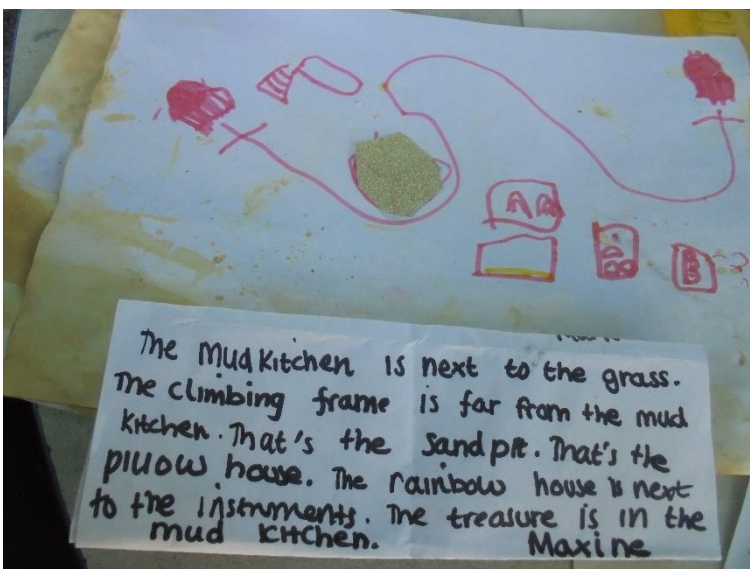 The Mud Kitchen is next to the grass.
The climbing frame is far from the mud
Kitchen. That's the sandpit. That's the
pillow house. The rainbow house is next
to the instruments. The treasure is in the
mud kitchen. Maxine